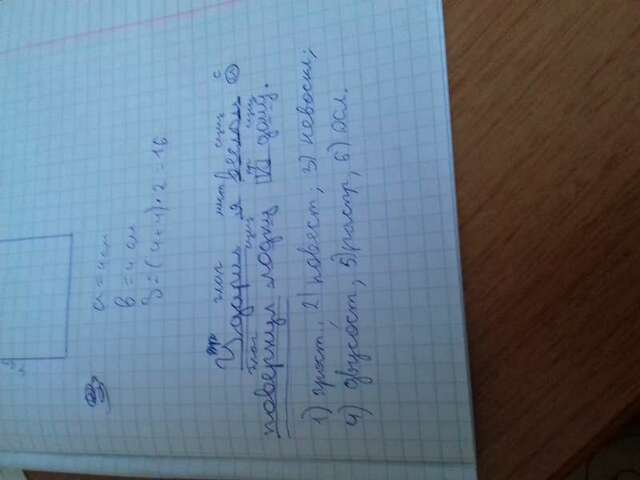 a = 4 см
в = 4 см
= (4+4)·2 = 16
пр глаг мест сущ с
Ударил я веслом и
глаг сущ пр сущ
повернул лодку к дому.
1) прост., 2) повест; 3) невоскл;
4) двусост, 5) распр, 6) осл.